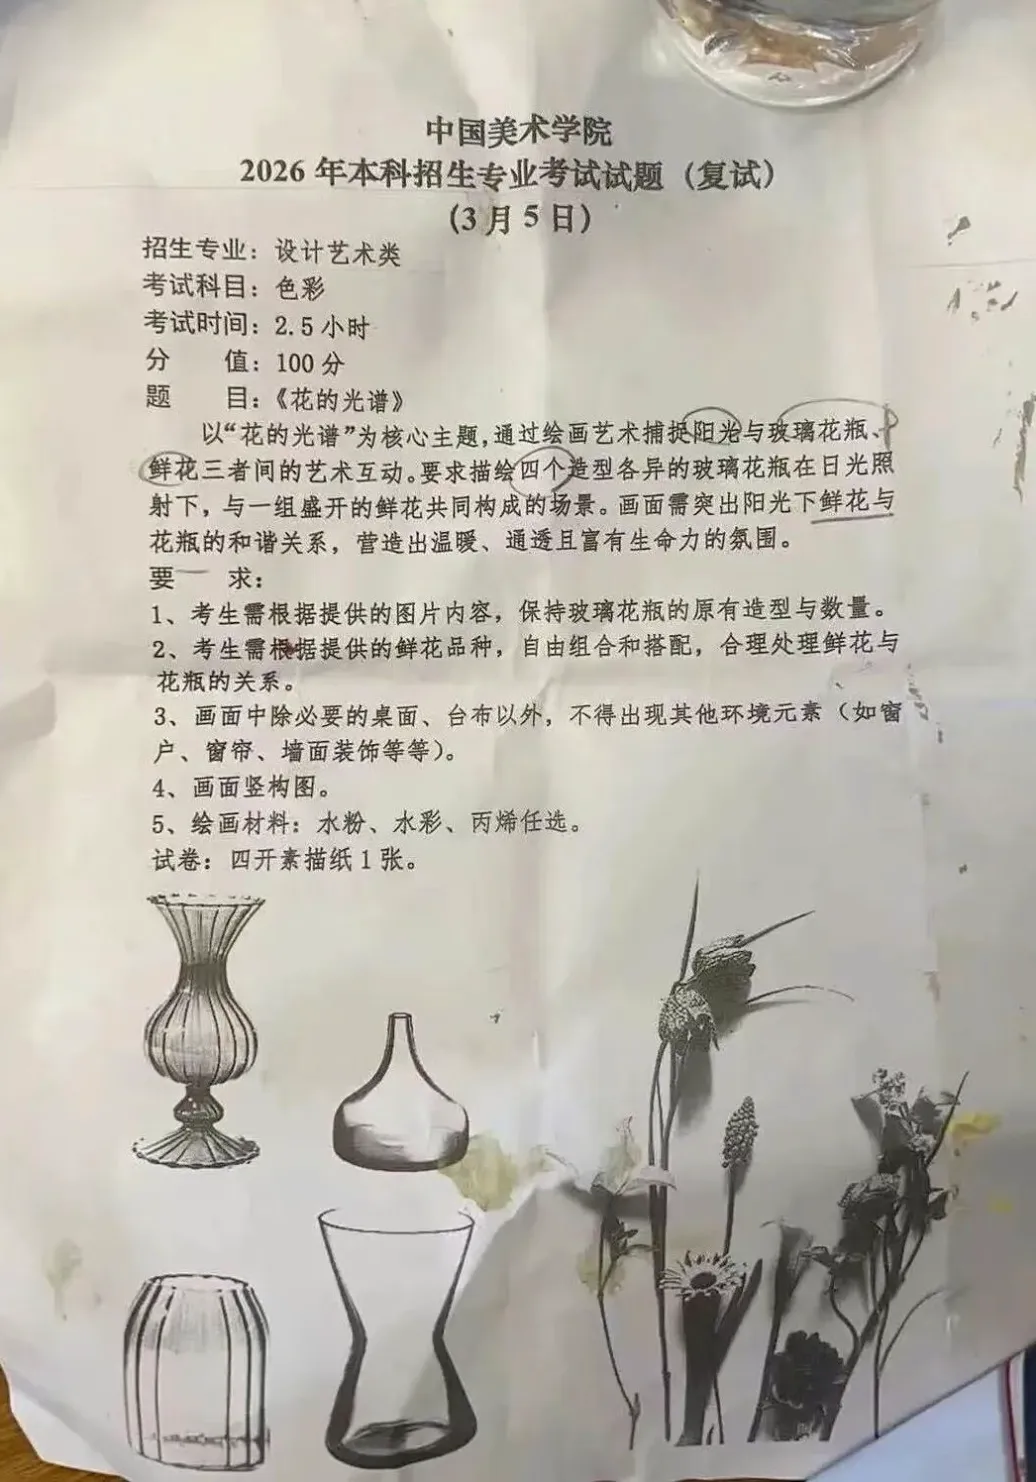 中国美术学院
2026 年本科招生专业考试试题（复试）
(3 月 5 日)
招生专业：设计艺术类
考试科目：色彩
考试时间：2.5 小时
分 值：100 分
题 目：《花的光谱》
以“花的光谱”为核心主题，通过绘画艺术捕捉阳光与玻璃花瓶、
鲜花三者间的艺术互动。要求描绘四个造型各异的玻璃花瓶在日光照
射下，与一组盛开的鲜花共同构成的场景。画面需突出阳光下鲜花与
花瓶的和谐关系，营造出温暖、通透且富有生命力的氛围。
要 求：
1、考生需根据提供的图片内容，保持玻璃花瓶的原有造型与数量。
2、考生需根据提供的鲜花品种，自由组合和搭配，合理处理鲜花与
花瓶的关系。
3、画面中除必要的桌面、台布以外，不得出现其他环境元素（如窗
户、窗帘、墙面装饰等等）。
4、画面竖构图。
5、绘画材料：水粉、水彩、丙烯任选。
试卷：四开素描纸 1 张。